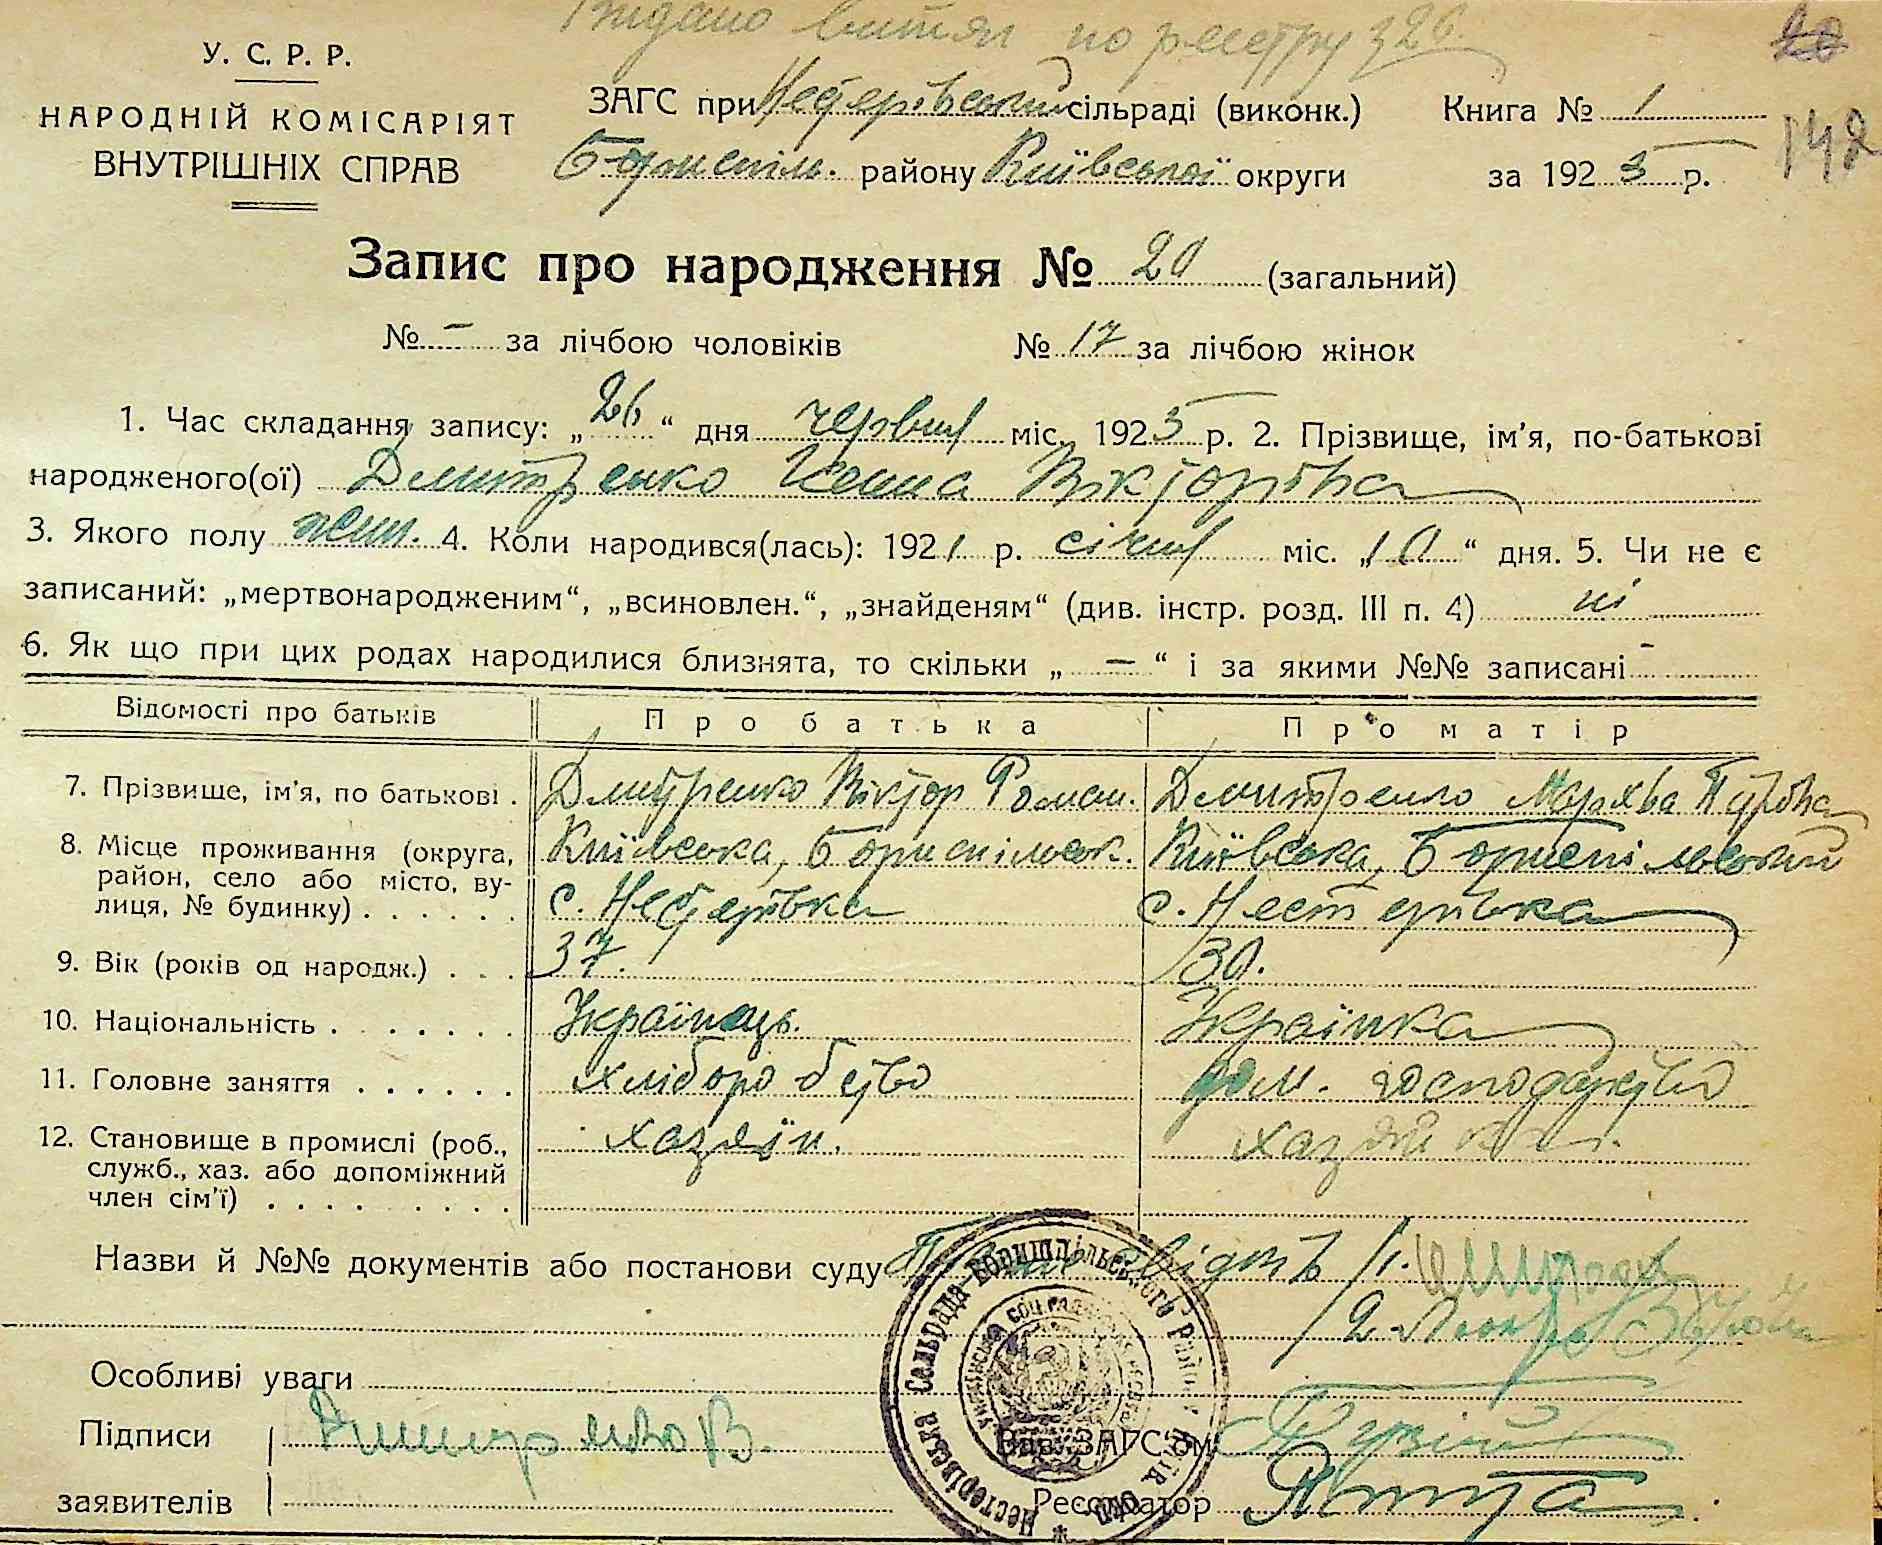 Видано витяг по реєстру з 26.
20
У. С. Р. Р.
НАРОДНІЙ КОМІСАРІЯТ
ВНУТРІШНІХ СПРАВ
ЗАГС при Нестерівський сільраді (виконк.)
Бориспіль. району Київської округи
Книга № 1
за 1925 р.
142
Запис про народження № 20 (загальний)
№ – за лічбою чоловіків № 17 за лічбою жінок
1. Час складання запису: „26“ дня червня міс. 1925 р. 2. Прізвище, ім'я, по-батькові
народженого(ої) Дмитренко Вікторівна
3. Якого полу жін. 4. Коли народився(лась): 1921 р. січня міс. „10“ дня. 5. Чи не є
записаний: „мертвонародженим“, „всиновлен.“, „знайденям“ (див. інстр. розд. III п. 4) ні
6. Як що при цих родах народилися близнята, то скільки „ — “ і за якими №№ записані -
Відомості про батьків Про батька Про матір
7. Прізвище, ім'я, по батькові . Дмитренко Віктор Роман. Дмитренко
8. Місце проживання (округа, Київська, Бориспільськ. Київська, Бориспільський
район, село або місто, ву-
лиця, № будинку) . . . . . . с. Нестерівка с. Нестерівка
9. Вік (років од народж.) . . . 37. 30.
10. Національність . . . . . . . Українець. Українка
11. Головне заняття . . . . . . хліборобство дом. господарство
12. Становище в промислі (роб., хазяїн. хазяйка
служб., хаз. або допоміжний
член сім'ї) . . . . . . . . .
Назви й №№ документів або постанови суду 1.
2.
Особливі уваги
Підписи В. Зав. ЗАГС'ом
заявителів Реєстратор
Нестерівська Сельрада Боришпільського Району Київ Окр.